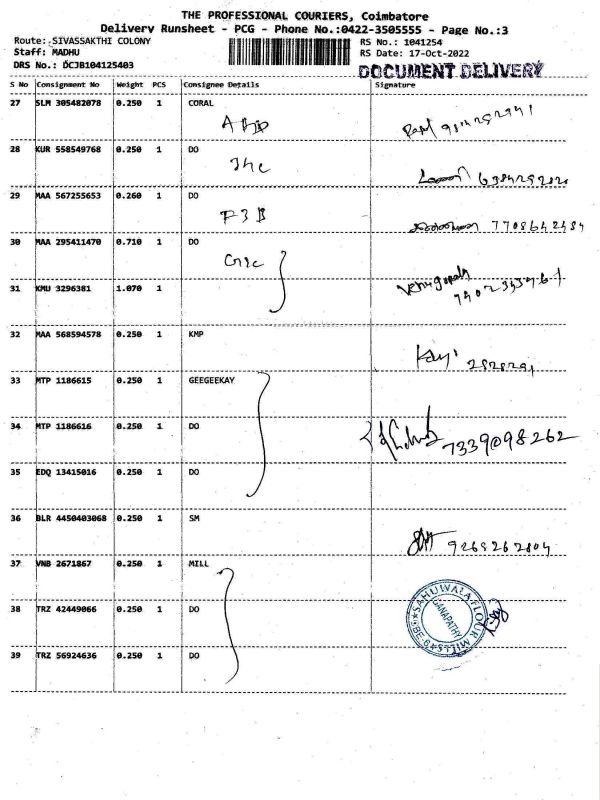 THE PROFESSIONAL COURIERS, Coimbatore
Delivery Runsheet - PCG - Phone No.:0422-3505555 - Page No.:3
Route: SIVASSAKTHI COLONY RS No.: 1041254
Staff: MADHU RS Date: 17-Oct-2022
DRS No.: DCJB104125403 DOCUMENT DELIVERY
S No Consignment No Weight PCS Consignee Details Signature
27 SLM 305482078 0.250 1 CORAL
28 KUR 558549768 0.250 1 DO
29 MAA 567255653 0.260 1 DO
F3B 7708642484
30 MAA 295411470 0.710 1 DO
31 KMU 3296381 1.070 1
32 MAA 568594578 0.250 1 KMP
33 MTP 1186615 0.250 1 GEEGEEKAY
34 MTP 1186616 0.250 1 DO
7339098262
35 EDQ 13415016 0.250 1 DO
36 BLR 4450403068 0.250 1 SM
9265262804
37 VNB 2671867 0.250 1 MILL
38 TRZ 42449066 0.250 1 DO
SAHUWALA FLOUR MILLS
GANAPATHY
CBE-6
39 TRZ 56924636 0.250 1 DO